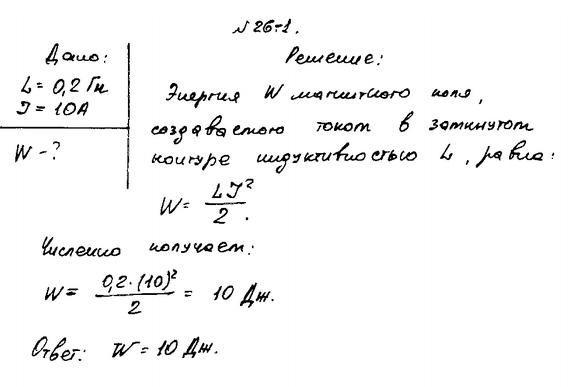 № 26-1.
Дано:
L = 0,2 Гн
I = 10А
W - ?
Решение:
Энергия W магнитного поля,
создаваемого током в замкнутом
контуре индуктивностью L, равна:
W = LI²/2.
Численно получаем:
W = 0,2·(10)²/2 = 10 Дж.
Ответ: W = 10 Дж.